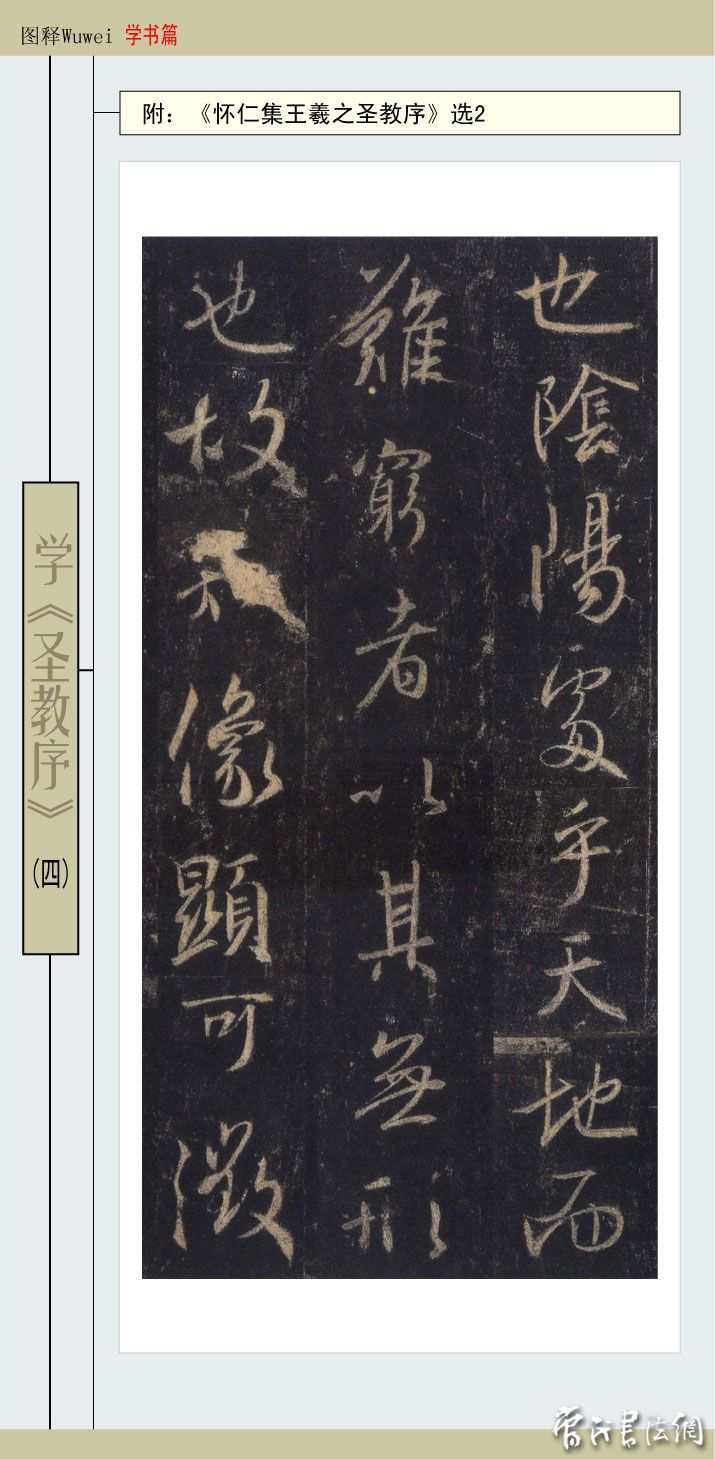 图释Wuwei 学书篇
附：《怀仁集王羲之圣教序》选2
学《圣教序》
(四)
也陰陽處乎天地而
難窮者以其無形
也故像顯可徵
書法網